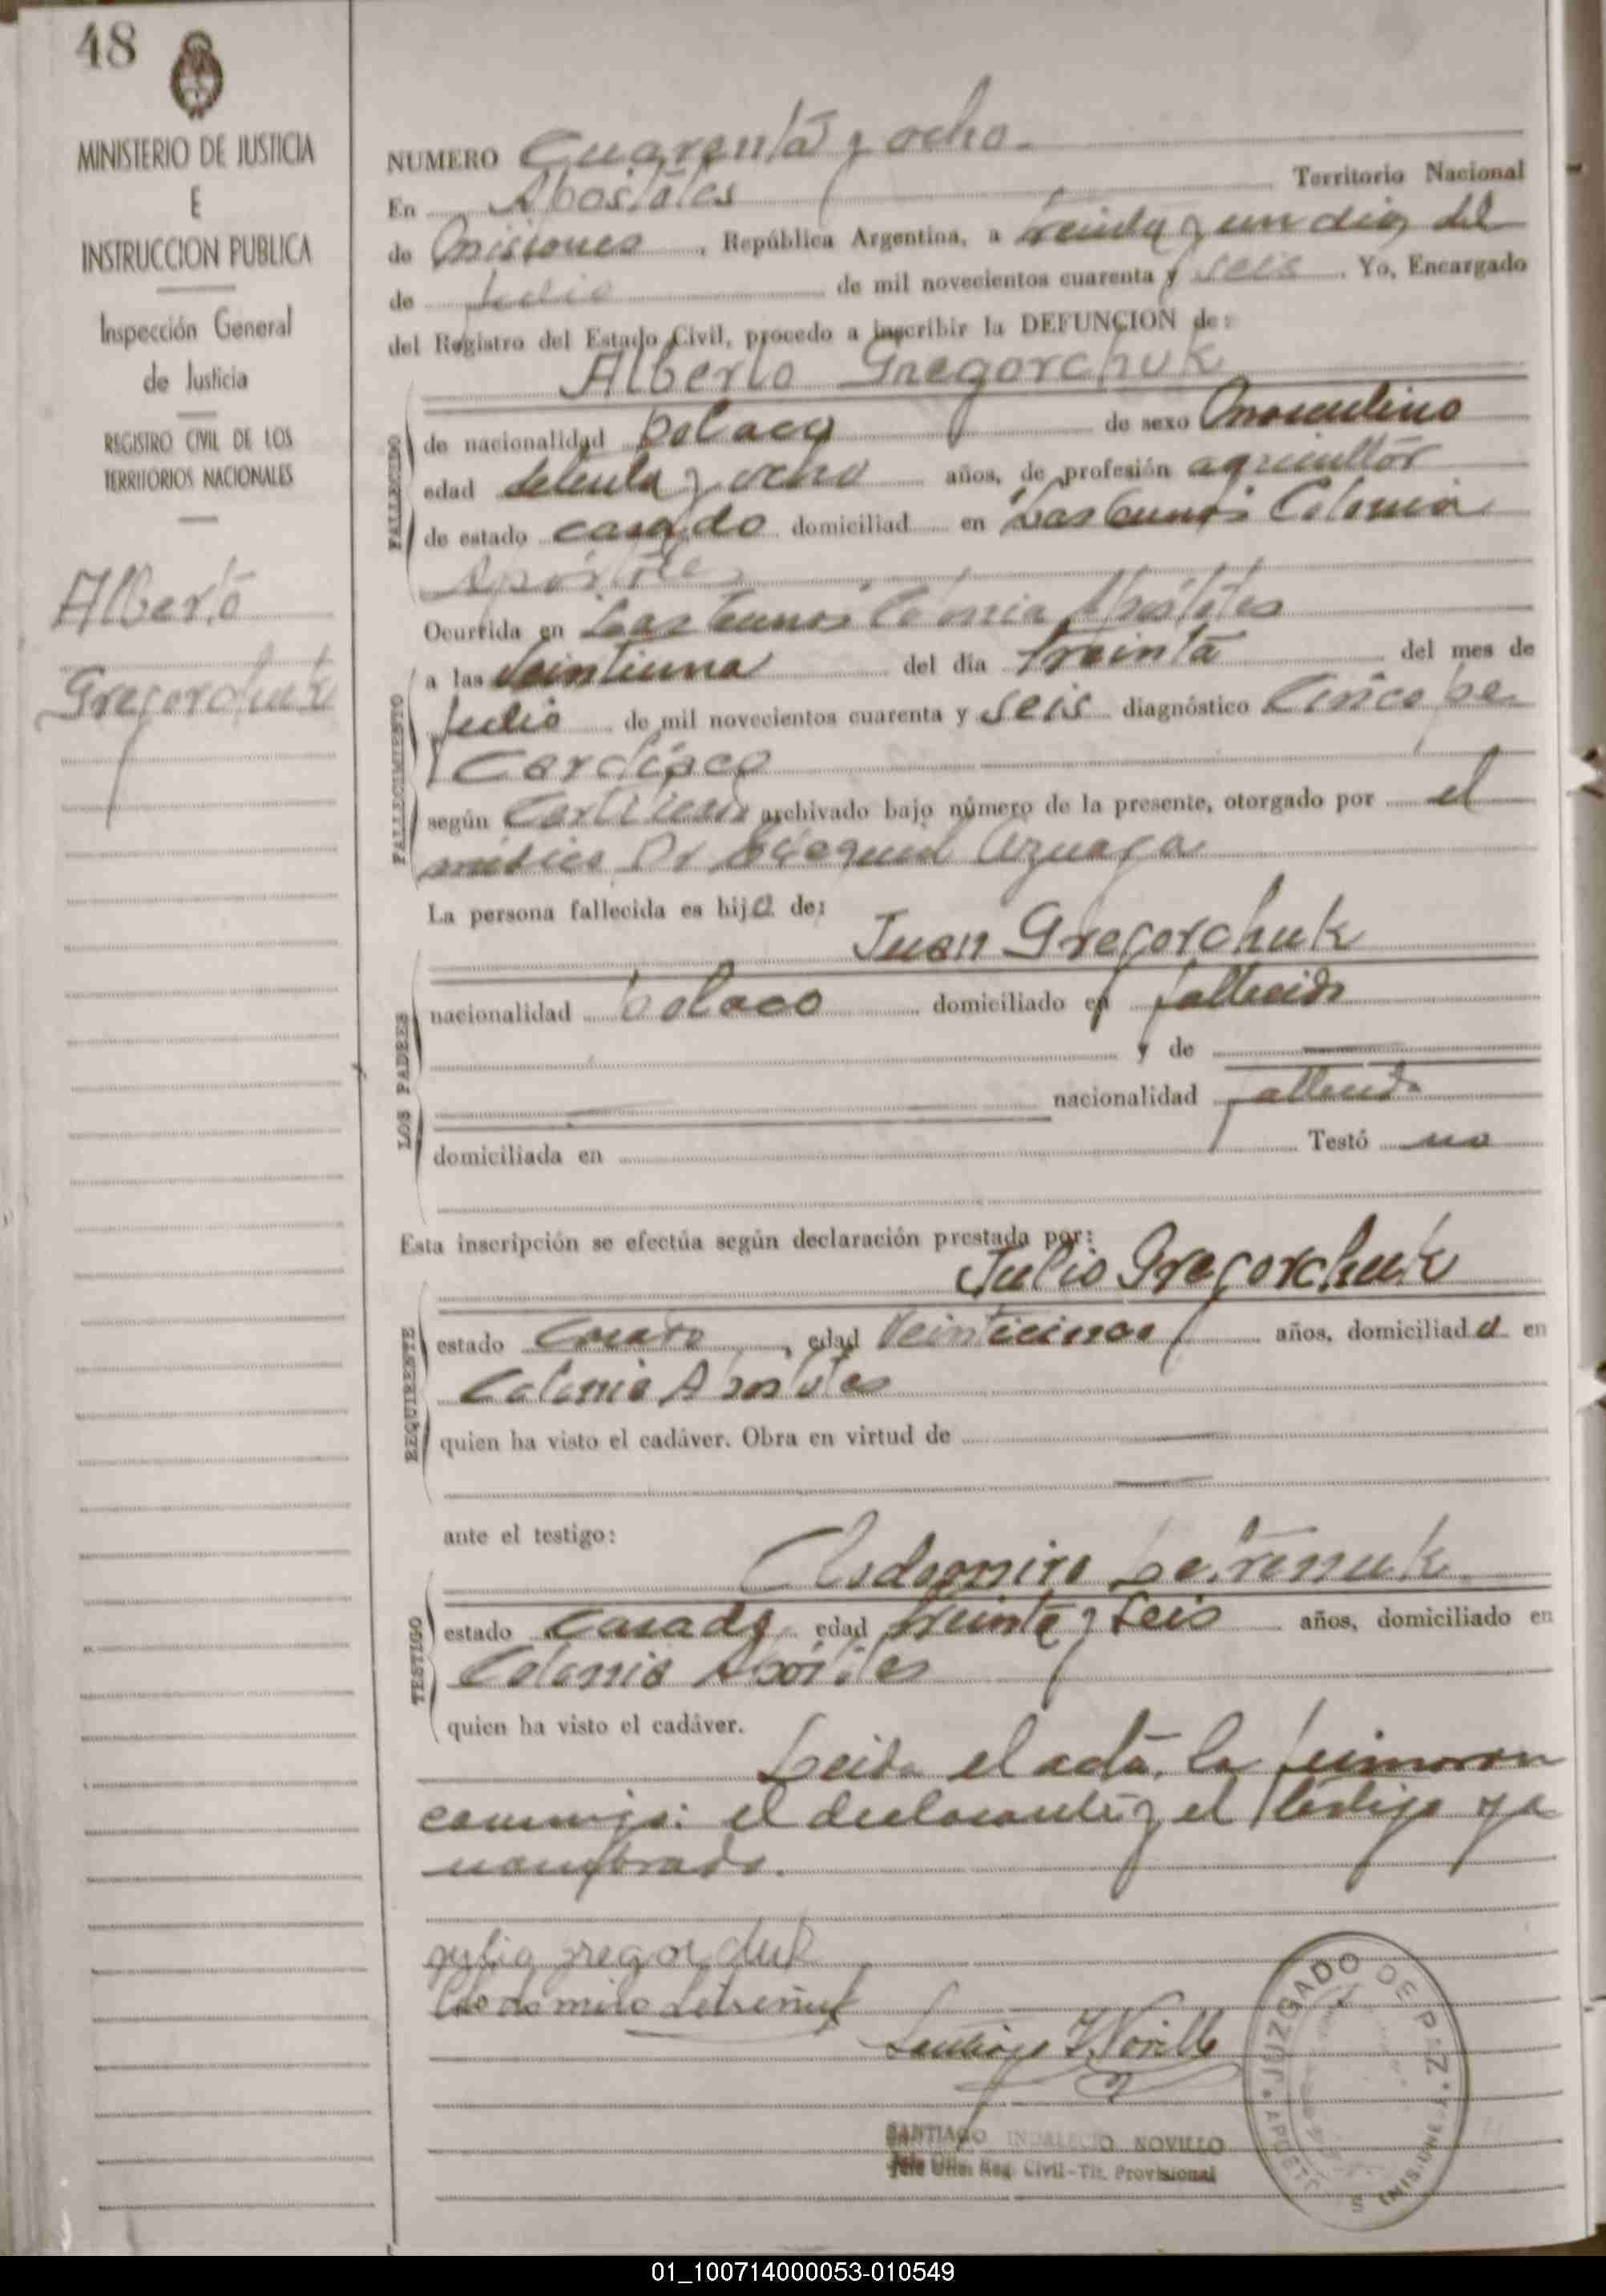 48
MINISTERIO DE JUSTICIA
E
INSTRUCCION PUBLICA
Inspección General
de Justicia
REGISTRO CIVIL DE LOS
TERRITORIOS NACIONALES
Alberto
Gregorchuk
NUMERO Cuarenta y ocho.
En Apóstoles Territorio Nacional
de Misiones, República Argentina, a treinta y un dias del
de Julio de mil novecientos cuarenta y seis. Yo, Encargado
del Registro del Estado Civil, procedo a inscribir la DEFUNCION de:
Alberto Gregorchuk
FALLECIDO
de nacionalidad polaca de sexo masculino
edad setenta y ocho años, de profesión agricultor
de estado casado domiciliad en Las Tunas Colonia
Apóstoles
Ocurrida en Las Tunas Colonia Apóstoles
FALLECIMIENTO
a las veintiuna del día treinta del mes de
Julio de mil novecientos cuarenta y seis diagnóstico
Cardíaco
según Certificado archivado bajo número de la presente, otorgado por el
médico Dr Azuaga
La persona fallecida es hijo de:
Juan Gregorchuk
LOS PADRES
nacionalidad polaco domiciliado en fallecido
y de
nacionalidad fallecida
domiciliada en Testó no
Esta inscripción se efectúa según declaración prestada por:
Julio Gregorchuk
REQUIRENTE
estado Casado, edad veinticinco años, domiciliado en
Colonia Apóstoles
quien ha visto el cadáver. Obra en virtud de
ante el testigo:
Clodomiro
TESTIGO
estado casado edad treinta y seis años, domiciliado en
Colonia Apóstoles
quien ha visto el cadáver.
Leida el acta, la firmaron
conmigo: el declarante y el testigo ya
nombrado.
julio gregorchuk
Clodomiro
Santiago I. Novillo
SANTIAGO INDALECIO NOVILLO
Jefe Ofic. Reg. Civil-Tit. Provisional
JUZGADO DE PAZ
APOSTOLES MISIONES
01_100714000053-010549